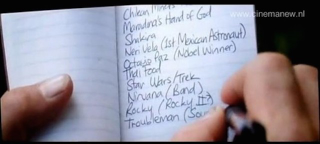 www.cinemanew.nl
Chilean Miners
Maradona's Hand of God
Shakira
Neri Vela (1st Mexican Astronaut)
Octavio Paz (Nobel Winner)
Thai food
Star Wars/Trek
Nirvana (Band)
Rocky (Rocky II?)
Troubleman (Sou